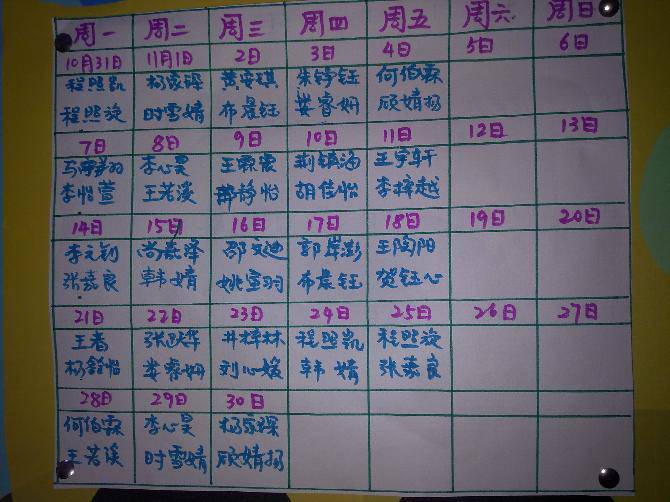 周一 周二 周三 周四 周五 周六 周日
10月31日 11月1日 2日 3日 4日 5日 6日
程照凯 杨家琛 黄安琪 朱铮钰 何伯霖
程照旋 时雪婧 布晨钰 娄睿妍 顾婧扬
7日 8日 9日 10日 11日 12日 13日
李心昊 王霖宸 王宇轩
李怡萱 王若溪 静怡 胡佳怡 李梓越
14日 15日 16日 17日 18日 19日 20日
李元钊 尚嘉泽 邵文迪 郭岸澎 王陶阳
张嘉良 韩婧 姚宝羽 布晨钰 贺钰心
21日 22日 23日 24日 25日 26日 27日
王睿 张 华 井梓林 程照凯 程照旋
杨 怡 娄睿妍 刘心媛 韩婧 张嘉良
28日 29日 30日
何伯霖 李心昊 杨家琛
王若溪 时雪婧 顾婧扬